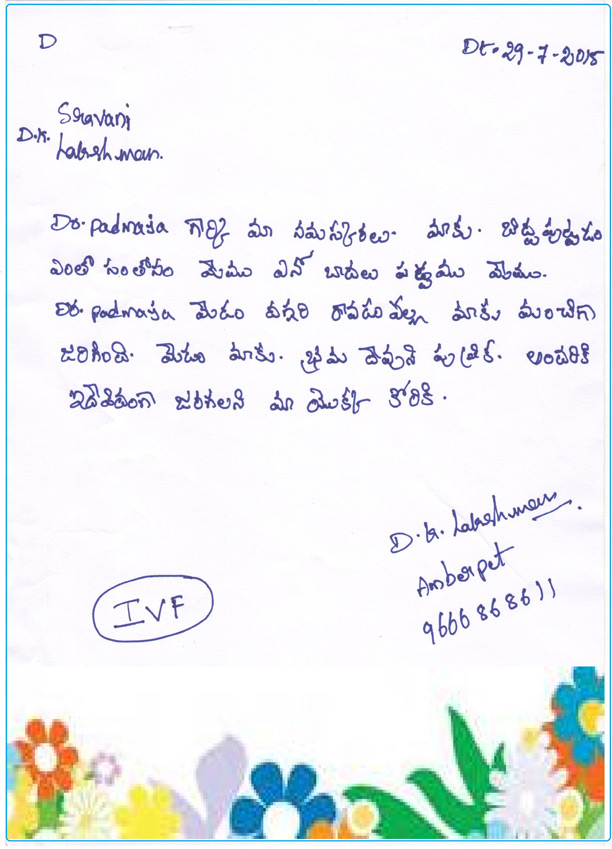 D
Dt. 29-7-2015
Sravani
D.K. Lakshman.
Dr. padmaja గార్కి మా నమస్కరలు. మాకు. బిడ్డ పుట్టుడం
ఎంతో సంతోసం మేము ఎనో బాదలు పడ్డము మేము.
Dr. padmaja మెడం దగ్గరి రావడం వల్ల మాకు మంచిగా
జరిగింది. మెడం మాకు. భ్రమ దెవుని పుత్రిక. అందరికి
ఇదెవిదంగా జరగలని మా యొక్క కోరికి.
D.K. Lakshman
Amberpet
9666868611
IVF